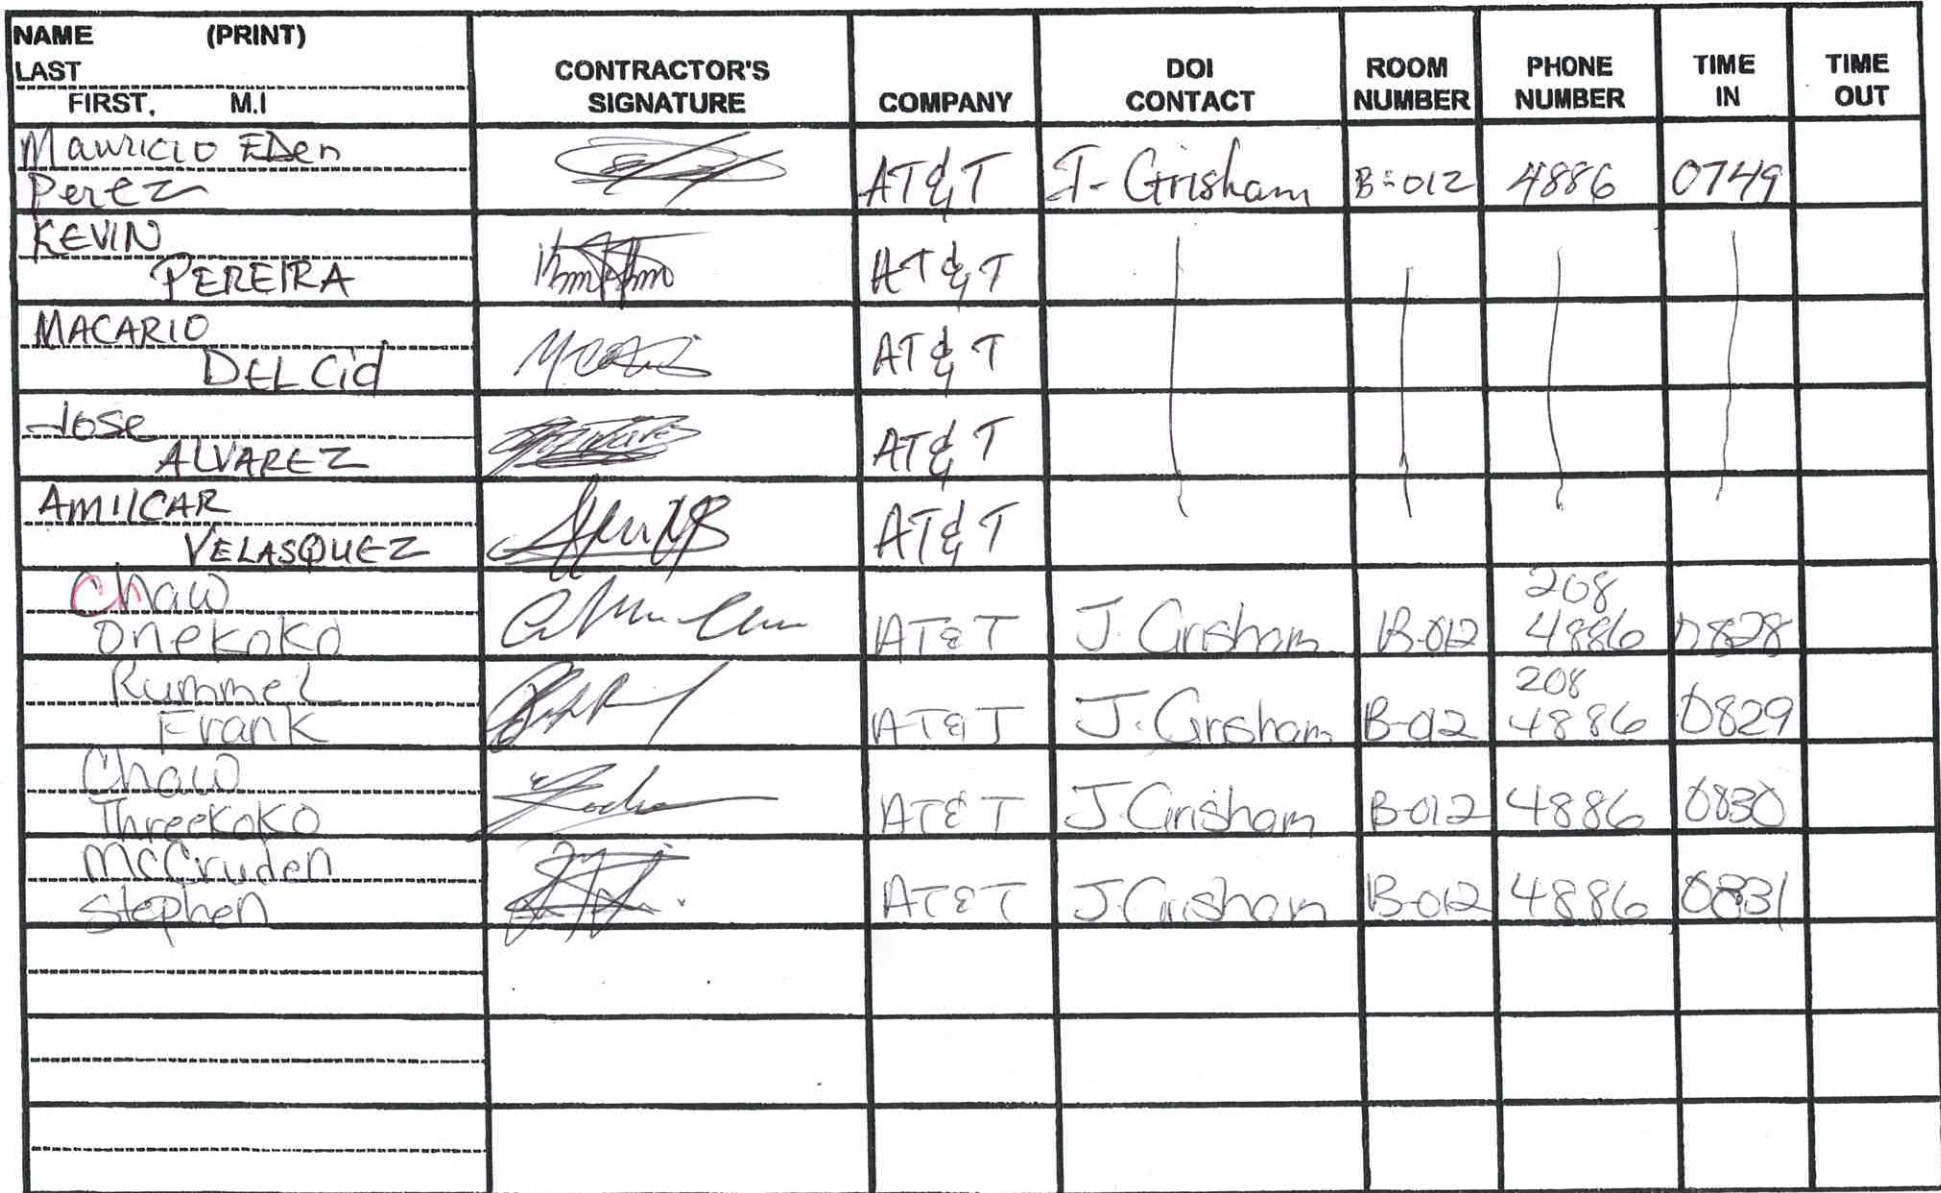 NAME (PRINT)
LAST
FIRST, M.I
CONTRACTOR'S
SIGNATURE
COMPANY
DOI
CONTACT
ROOM
NUMBER
PHONE
NUMBER
TIME
IN
TIME
OUT
Mauricio EDen
Perez
AT&T J- Grisham B-012 4886 0749
KEVIN
PEREIRA
AT&T
MACARIO
DEL Cid
AT&T
Jose
ALVAREZ
AT&T
AMILCAR
VELASQUEZ
AT&T
Chaw
Onekoko
AT&T J. Grisham B-012 208
4886 0828
Rummel
Frank
AT&T J. Grisham B-012 208
4886 0829
Chaw
Threekoko
AT&T J. Grisham B-012 4886 0830
McCruden
Stephen
AT&T J. Grisham B-012 4886 0831